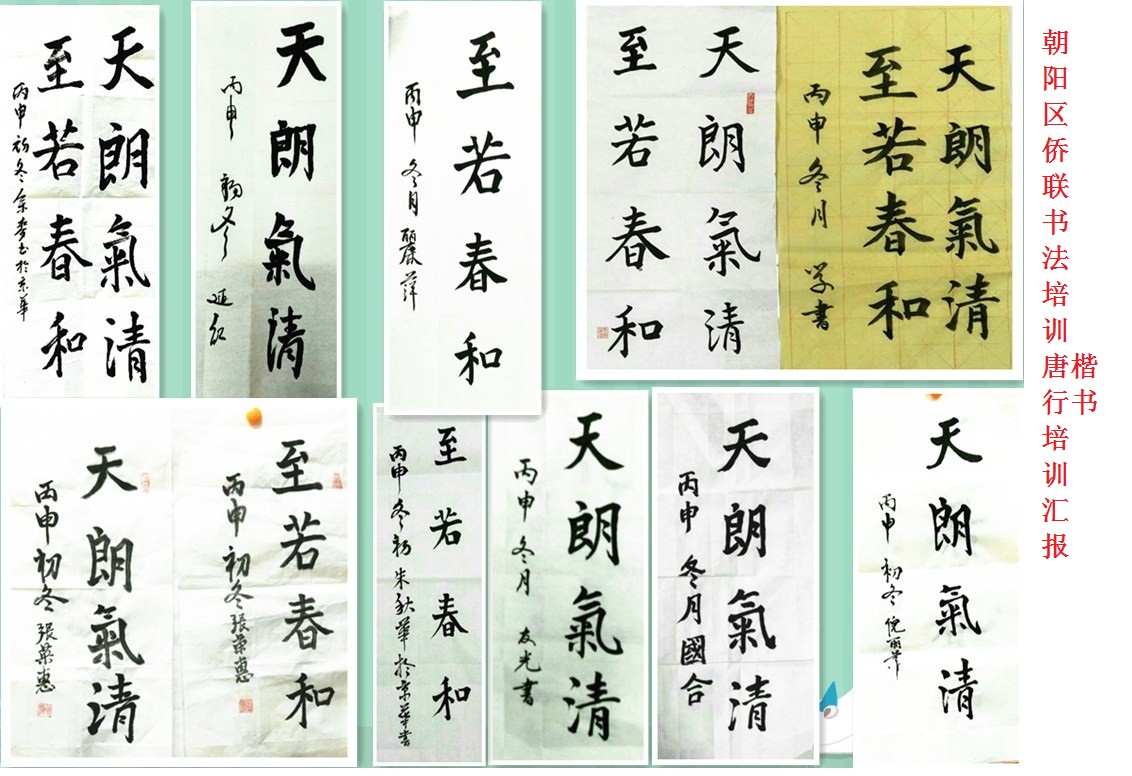 天朗氣清
至若春和
丙申初冬
於京華
天朗氣清
丙申
初冬
延紅
至若春和
丙申冬月麗萍
天朗氣清
至若春和
天朗氣清
至若春和
丙申冬月
學書
天朗氣清
丙申初冬張榮惠
至若春和
丙申初冬張榮惠
至若春和
丙申冬初朱秋華於京華書
天朗氣清
丙申冬月友光書
天朗氣清
丙申冬月國合
天朗氣清
丙申初冬倪丽華
朝阳区侨联书法培训唐楷
行书培训汇报